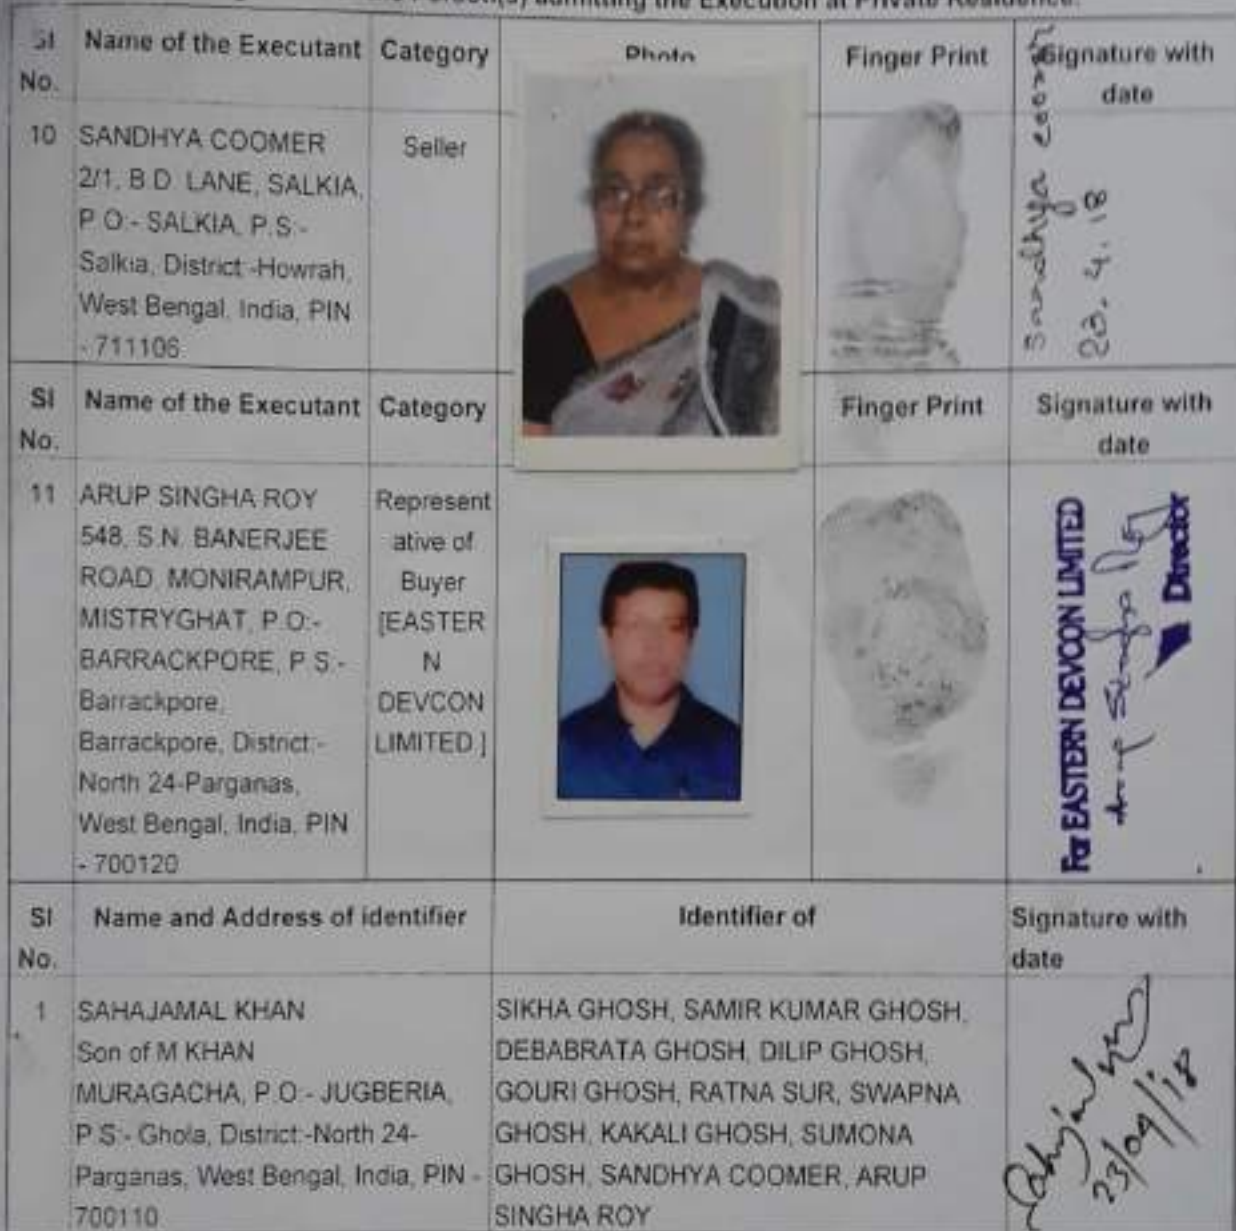 the Person(s) admitting the Execution at Private Residence.
Sl No.
Name of the Executant
Category
Photo
Finger Print
Signature with date
10
SANDHYA COOMER
2/1, B.D. LANE, SALKIA,
P.O:- SALKIA, P.S:-
Salkia, District:-Howrah,
West Bengal, India, PIN
- 711106
Seller
Sandhya Coomer
23.4.18
Sl No.
Name of the Executant
Category
Finger Print
Signature with date
11
ARUP SINGHA ROY
548, S.N. BANERJEE
ROAD, MONIRAMPUR,
MISTRYGHAT, P.O:-
BARRACKPORE, P.S:-
Barrackpore,
Barrackpore, District:-
North 24-Parganas,
West Bengal, India, PIN
- 700120
Represent
ative of
Buyer
[EASTER
N
DEVCON
LIMITED ]
For EASTERN DEVCON LIMITED
Arup Singha Roy
Director
Sl No.
Name and Address of identifier
Identifier of
Signature with date
1
SAHAJAMAL KHAN
Son of M KHAN
MURAGACHA, P.O:- JUGBERIA,
P.S:- Ghola, District:-North 24-
Parganas, West Bengal, India, PIN -
700110
SIKHA GHOSH, SAMIR KUMAR GHOSH,
DEBABRATA GHOSH, DILIP GHOSH,
GOURI GHOSH, RATNA SUR, SWAPNA
GHOSH, KAKALI GHOSH, SUMONA
GHOSH, SANDHYA COOMER, ARUP
SINGHA ROY
23/04/18